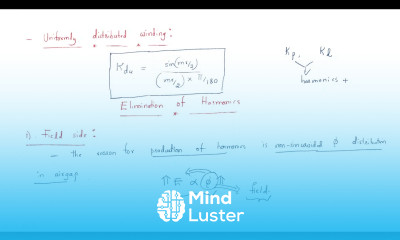 - Uniformly distributed winding:
Kdu = sin(mα/2) / (mα/2) × π/180
Kp, Kd
harmonics +
Elimination of Harmonics
A Field side:
- the reason for production of harmonics is non-sinusoidal φ distribution
in airgap
⇈ E ∝ φ ⇈
field
Mind
Luster